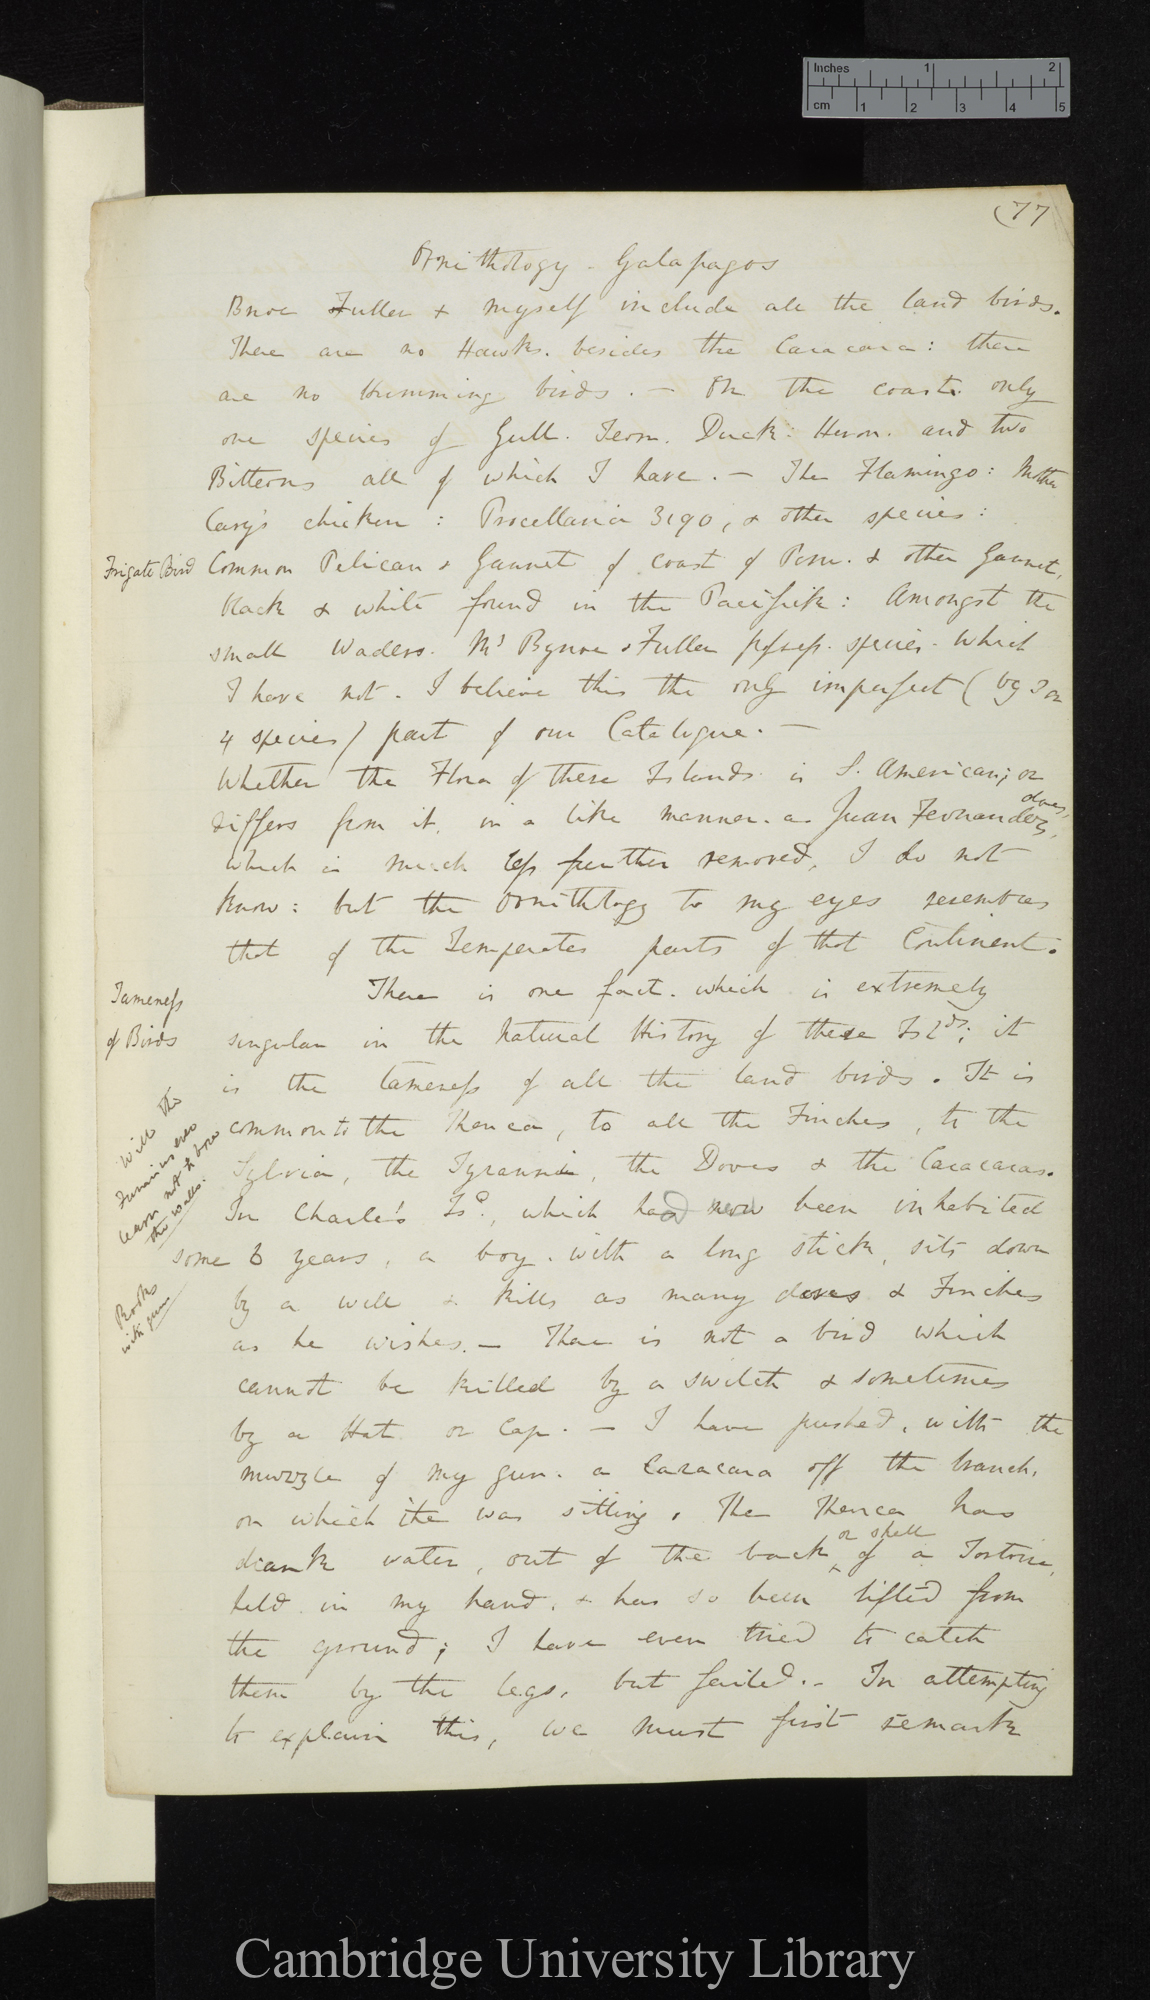 Inches 1 2
cm 1 2 3 4 5
(77
Ornithology - Galapagos
Bnoe Fuller & myself include all the land birds.
There are no Hawks. besides the Caracara: there
are no Humming birds. — On the coast. only
one species of Gull. Tern. Duck: Heron. and two
Bitterns all of which I have. — The Flamingo: Mother
Cary's chicken: Procellaria 3190, & other species:
Frigate Bird
Common Pelican & Gannet of coast of Peru. & other Gannet,
black & white found in the Pacifick: Amongst the
small Waders. Mr Bynoe & Fuller possess. species. which
I have not. I believe this the only imperfect (by 3 or
4 species) part of our Catalogue. —
Whether the Flora of these Islands is S. American; or
differs from it, in a like manner. as Juan Fernandez does,
which is much less further removed, I do not
know: but the Ornithology to my eyes resembles
that of the Temperates parts of that Continent.
Tameness
of Birds
There is one fact. which is extremely
singular in the Natural History of these Islds; it
is the tameness of all the land birds. It is
common to the Thenca, to all the Finches, to the
Sylvia, the Tyrannus, the Doves & the Caracaras.
Will the
Furnarius ever
learn not to bore
the walls.
In Charles's Isd, which had now been inhabited
some 6 years, a boy. with a long stick, sits down
by a well & kills as many doves & Finches
Rooks
with guns
as he wishes. — There is not a bird which
cannot be killed by a switch & sometimes
by a Hat or Cap. — I have pushed, with the
muzzle of my gun. a Caracara off the branch,
on which the was sitting. The Thenca has
drank water, out of the back or shell of a Tortoise,
held in my hand, & has so been lifted from
the ground; I have even tried to catch
them by the legs, but failed. — In attempting
to explain this, we must first remark
Cambridge University Library